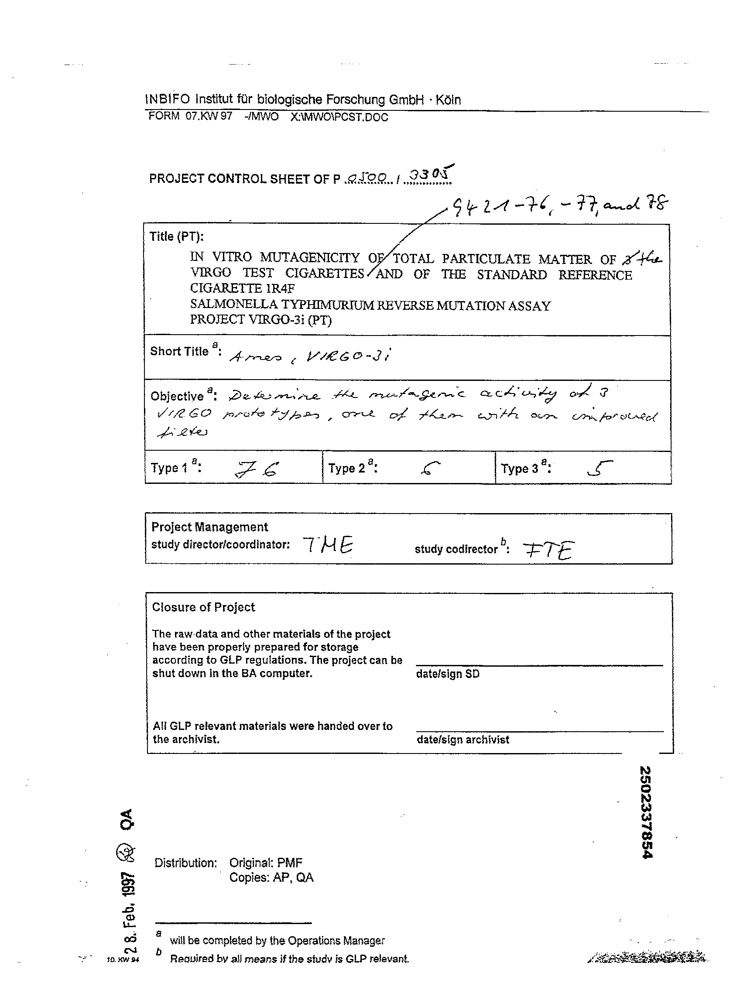 INBIFO Institut für biologische Forschung GmbH · Köln
FORM 07.KW 97 -/MWO X:\MWO\PCST.DOC
PROJECT CONTROL SHEET OF P 0500 / 3305
9421-76, -77, and 78
Title (PT):
IN VITRO MUTAGENICITY OF TOTAL PARTICULATE MATTER OF 3 the
VIRGO TEST CIGARETTES AND OF THE STANDARD REFERENCE
CIGARETTE 1R4F
SALMONELLA TYPHIMURIUM REVERSE MUTATION ASSAY
PROJECT VIRGO-3i (PT)
Short Title a: Ames, VIRGO-3i
Objective a: Determine the mutagenic activity of 3
VIRGO prototypes, one of them with an improved
filter
Type 1 a: 76 Type 2 a: 6 Type 3 a: 5
Project Management
study director/coordinator: TME study codirector b: FTE
Closure of Project
The raw data and other materials of the project
have been properly prepared for storage
according to GLP regulations. The project can be
shut down in the BA computer. date/sign SD
All GLP relevant materials were handed over to
the archivist. date/sign archivist
2502337854
28. Feb. 1997 QA
Distribution: Original: PMF
Copies: AP, QA
a will be completed by the Operations Manager
b Required by all means if the study is GLP relevant.
10. KW 94